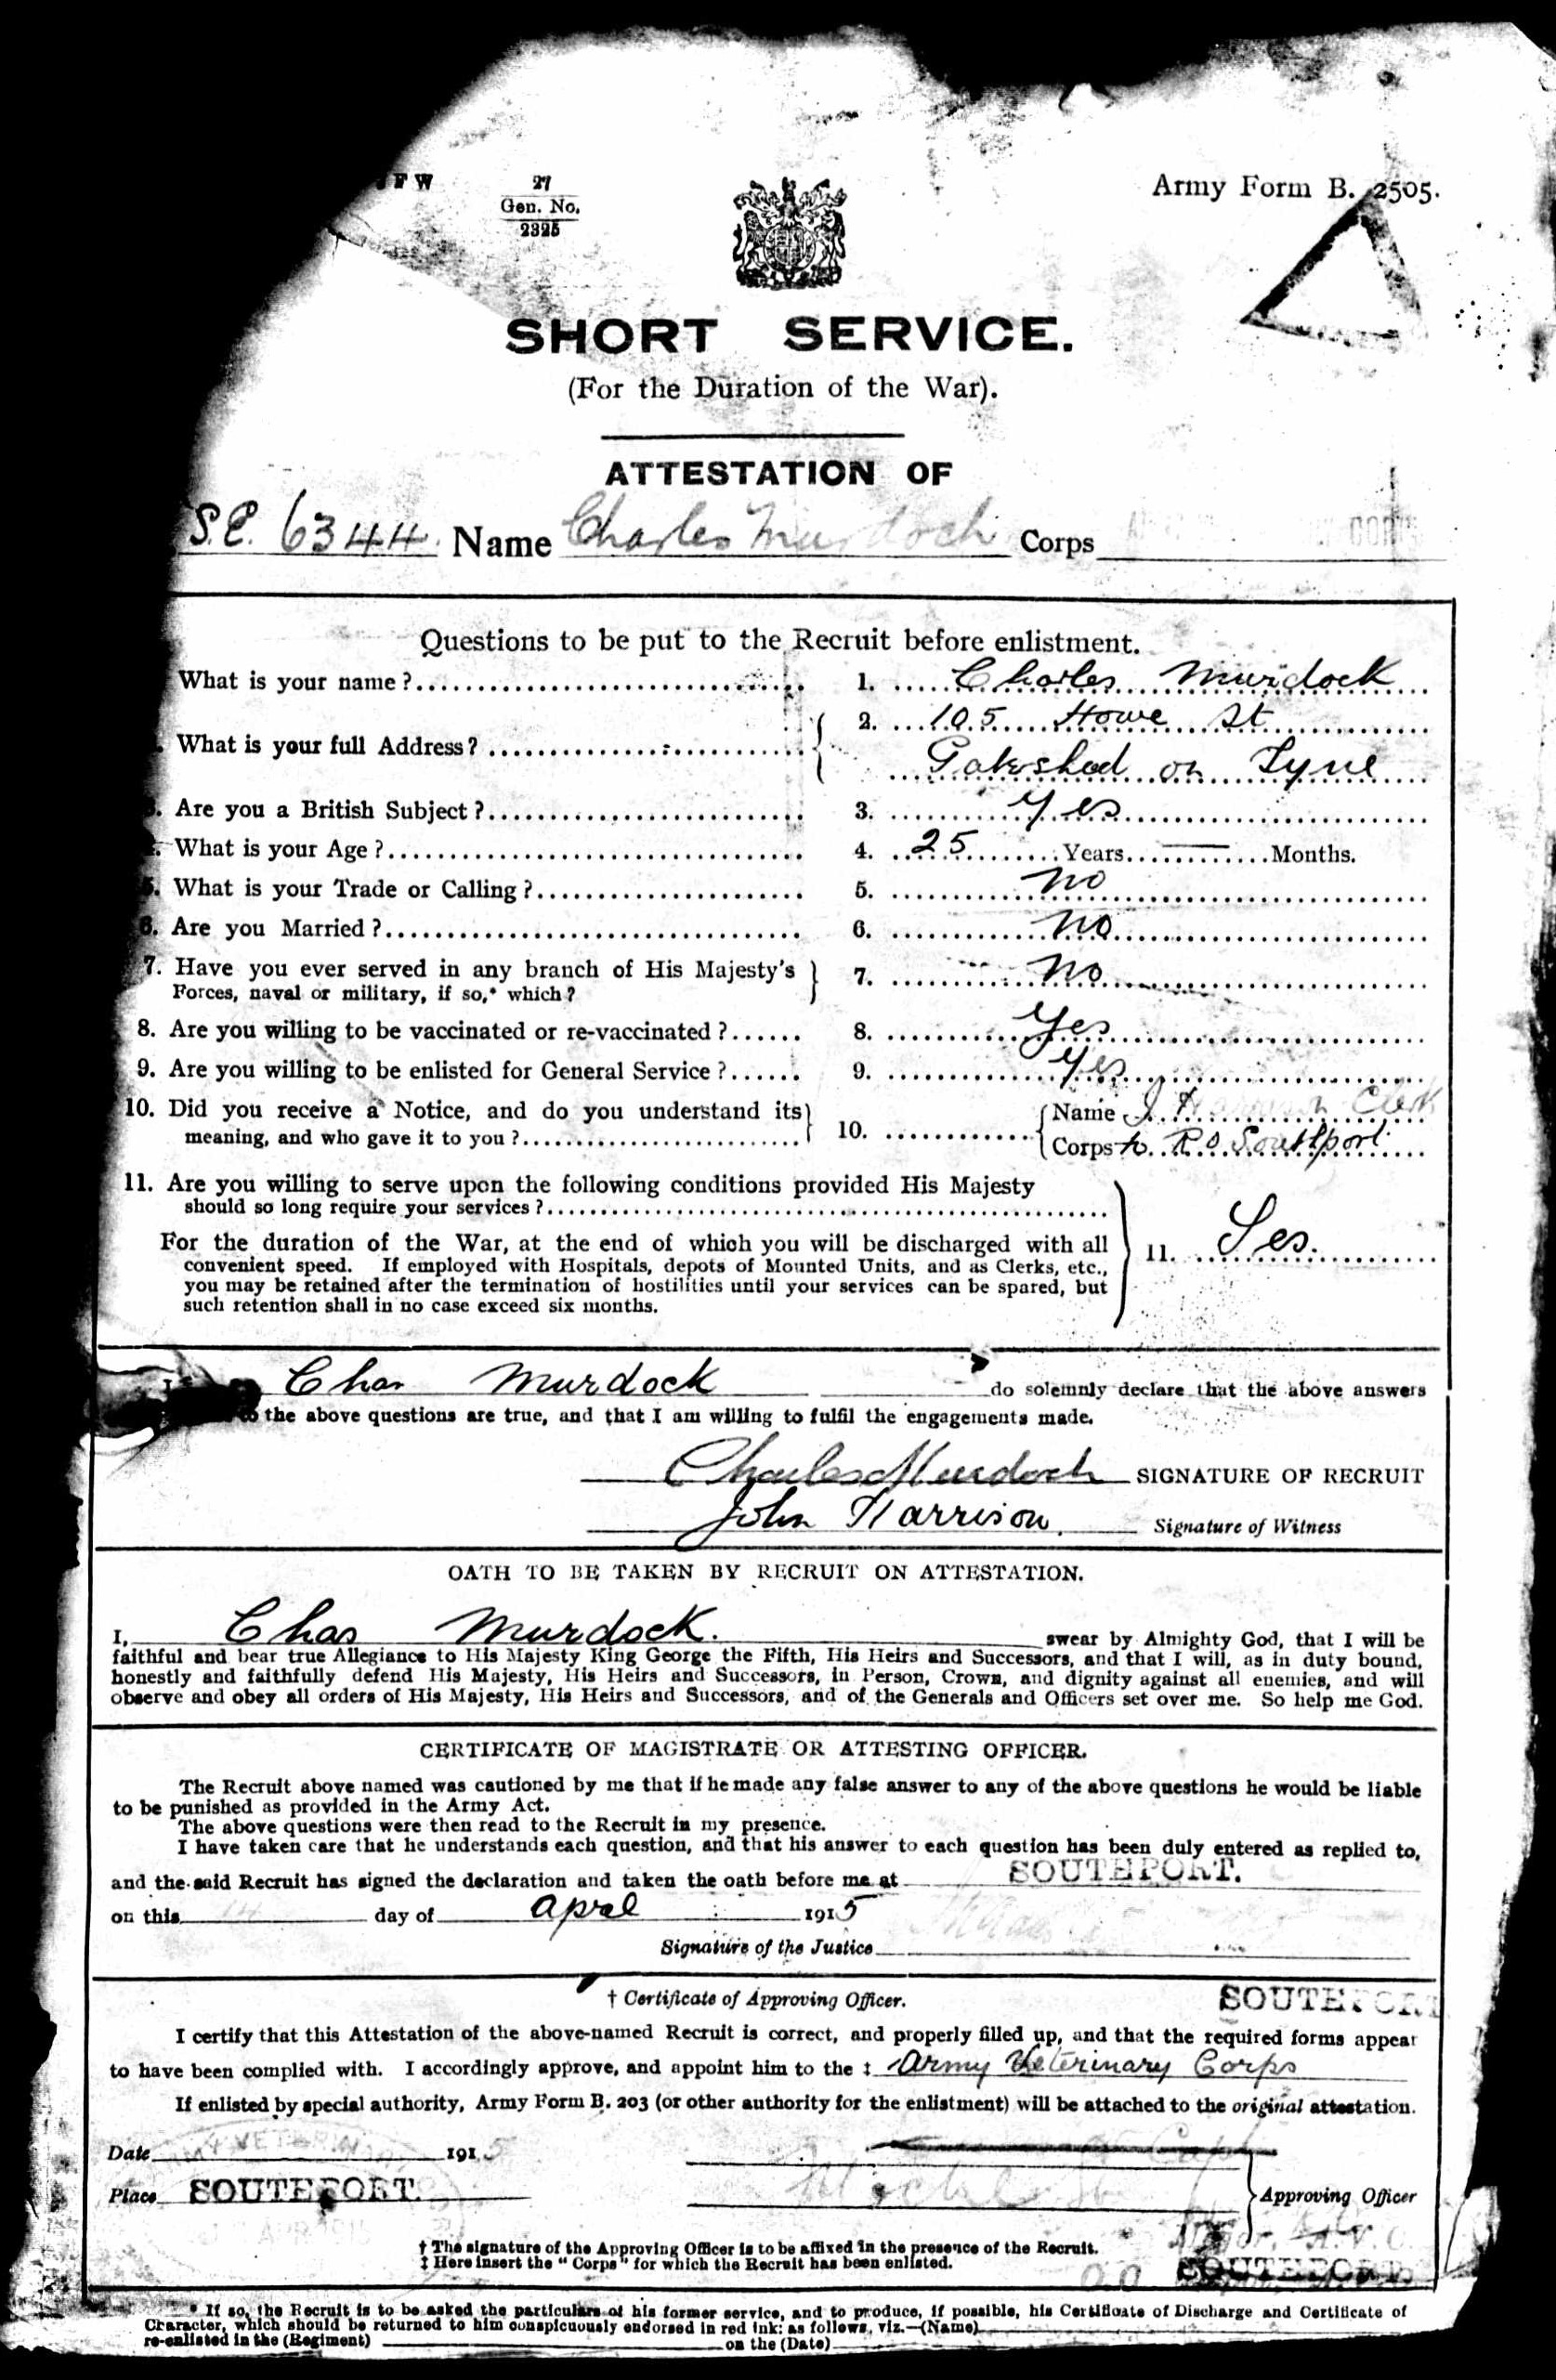 F W
27
Gen. No.
2325
Army Form B. 2505.
SHORT SERVICE.
(For the Duration of the War).
ATTESTATION OF
S.E. 6344. Name Charles Murdoch Corps CORPS
Questions to be put to the Recruit before enlistment.
What is your name? 1. Charles Murdock
What is your full Address? 2. 105 Howe St
Gateshead on Tyne
3. Are you a British Subject? 3. Yes
What is your Age? 4. 25 Years — Months.
5. What is your Trade or Calling? 5. no
6. Are you Married? 6. no
7. Have you ever served in any branch of His Majesty's
Forces, naval or military, if so,* which? 7. no
8. Are you willing to be vaccinated or re-vaccinated? 8. Yes
9. Are you willing to be enlisted for General Service? 9. Yes
10. Did you receive a Notice, and do you understand its Name J. Clerk
meaning, and who gave it to you? 10. Corps R.O. Southport
11. Are you willing to serve upon the following conditions provided His Majesty
should so long require your services?
For the duration of the War, at the end of which you will be discharged with all 11. Yes.
convenient speed. If employed with Hospitals, depots of Mounted Units, and as Clerks, etc.,
you may be retained after the termination of hostilities until your services can be spared, but
such retention shall in no case exceed six months.
I Chas Murdock do solemnly declare that the above answers
to the above questions are true, and that I am willing to fulfil the engagements made.
Charles Murdoch SIGNATURE OF RECRUIT
John Harrison. Signature of Witness
OATH TO BE TAKEN BY RECRUIT ON ATTESTATION.
I, Chas Murdock. swear by Almighty God, that I will be
faithful and bear true Allegiance to His Majesty King George the Fifth, His Heirs and Successors, and that I will, as in duty bound,
honestly and faithfully defend His Majesty, His Heirs and Successors, in Person, Crown, and dignity against all enemies, and will
observe and obey all orders of His Majesty, His Heirs and Successors, and of the Generals and Officers set over me. So help me God.
CERTIFICATE OF MAGISTRATE OR ATTESTING OFFICER.
The Recruit above named was cautioned by me that if he made any false answer to any of the above questions he would be liable
to be punished as provided in the Army Act.
The above questions were then read to the Recruit in my presence.
I have taken care that he understands each question, and that his answer to each question has been duly entered as replied to,
and the said Recruit has signed the declaration and taken the oath before me at SOUTHPORT.
on this 14 day of April 1915
Signature of the Justice
† Certificate of Approving Officer. SOUTHPORT
I certify that this Attestation of the above-named Recruit is correct, and properly filled up, and that the required forms appear
to have been complied with. I accordingly approve, and appoint him to the ‡ Army Veterinary Corps
If enlisted by special authority, Army Form B. 203 (or other authority for the enlistment) will be attached to the original attestation.
Date 1915 Capt
Place SOUTHPORT. Approving Officer
APR 1915 Major. A.V.C.
† The signature of the Approving Officer is to be affixed in the presence of the Recruit.
‡ Here insert the "Corps" for which the Recruit has been enlisted. SOUTHPORT.
* If so, the Recruit is to be asked the particulars of his former service, and to produce, if possible, his Certificate of Discharge and Certificate of
Character, which should be returned to him conspicuously endorsed in red ink: as follows, viz.—(Name)
re-enlisted in the (Regiment) on the (Date)